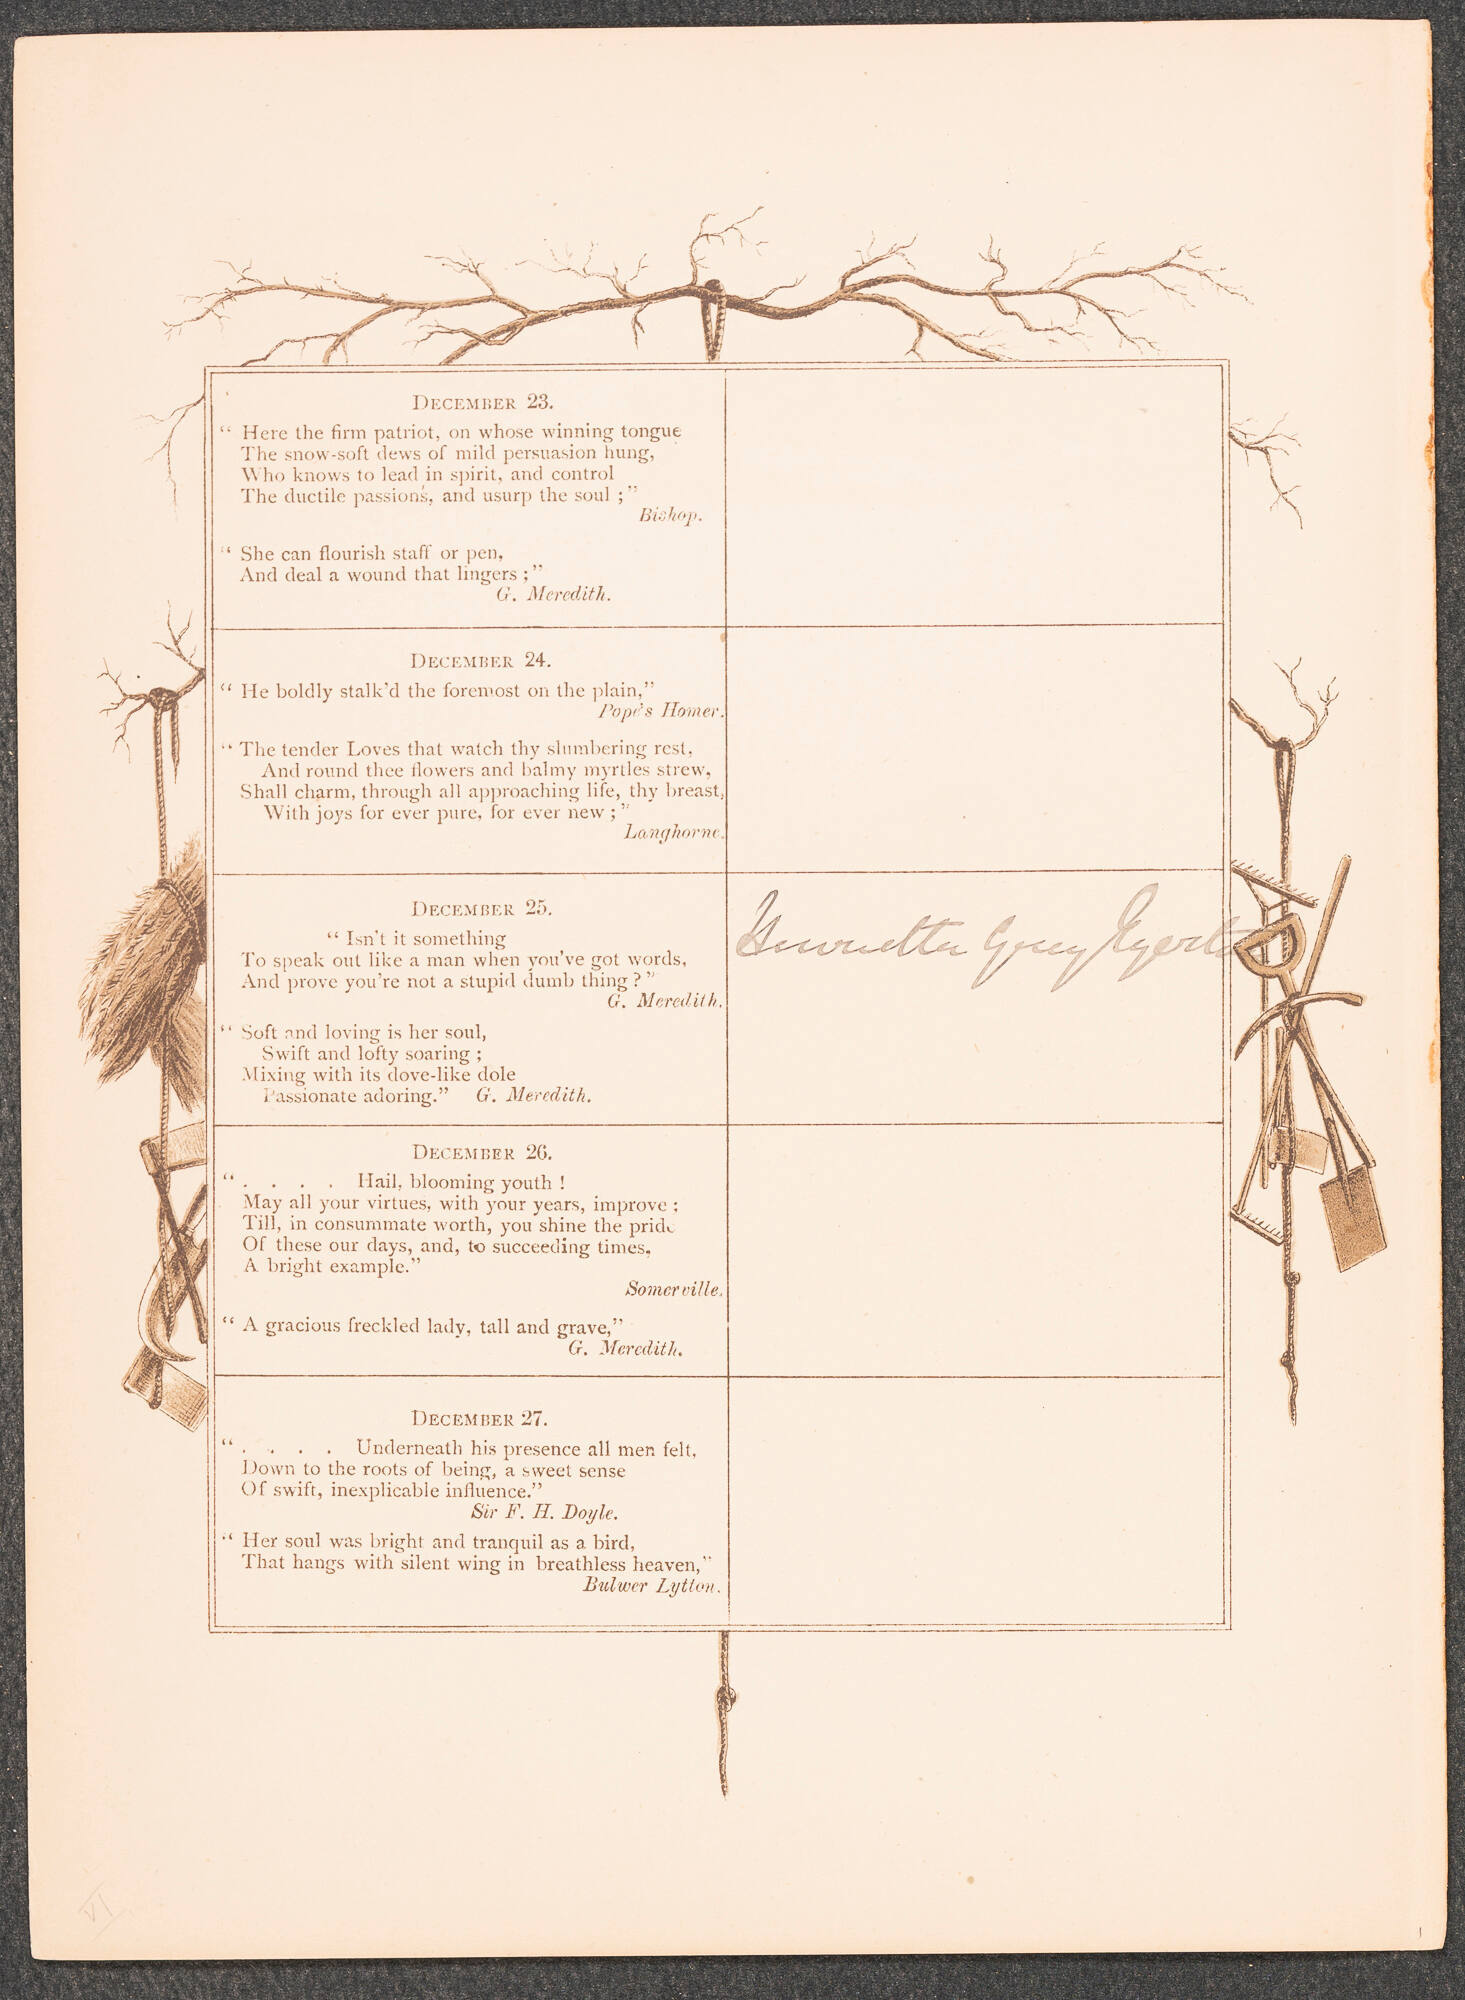 DECEMBER 23.
“ Here the firm patriot, on whose winning tongue
The snow-soft dews of mild persuasion hung,
Who knows to lead in spirit, and control
The ductile passions, and usurp the soul ;”
Bishop.
“ She can flourish staff or pen,
And deal a wound that lingers ;”
G. Meredith.
DECEMBER 24.
“ He boldly stalk’d the foremost on the plain,”
Pope’s Homer.
“ The tender Loves that watch thy slumbering rest,
And round thee flowers and balmy myrtles strew,
Shall charm, through all approaching life, thy breast,
With joys for ever pure, for ever new ;”
Langhorne.
DECEMBER 25.
“ Isn’t it something
To speak out like a man when you’ve got words,
And prove you’re not a stupid dumb thing ?”
G. Meredith.
“ Soft and loving is her soul,
Swift and lofty soaring ;
Mixing with its dove-like dole
Passionate adoring.” G. Meredith.
Henrietta Grey Egerton
DECEMBER 26.
“ . . . . Hail, blooming youth !
May all your virtues, with your years, improve ;
Till, in consummate worth, you shine the pride
Of these our days, and, to succeeding times,
A bright example.”
Somerville.
“ A gracious freckled lady, tall and grave,”
G. Meredith.
DECEMBER 27.
“ . . . . Underneath his presence all men felt,
Down to the roots of being, a sweet sense
Of swift, inexplicable influence.”
Sir F. H. Doyle.
“ Her soul was bright and tranquil as a bird,
That hangs with silent wing in breathless heaven,”
Bulwer Lytton.